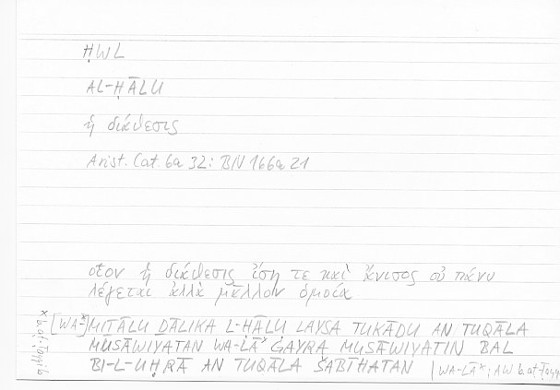 ḤWL
AL-ḤĀLU
ἡ διάθεσις
Arist. Cat. 6a 32; BN 166a 21
οἷον ἡ διάθεσις ἴση τε καὶ ἄνισος οὐ πάνυ
λέγεται ἀλλὰ μᾶλλον ὁμοία
[WA-*]MIṮĀLU ḎĀLIKA L-ḤĀLU LAYSA TUKĀDU AN TUQĀLA
MUSĀWIYATAN WA-LĀ* ĠAYRA MUSĀWIYATIN BAL
BI-L-UḤRĀ AN TUQĀLA ŠABĪHATAN